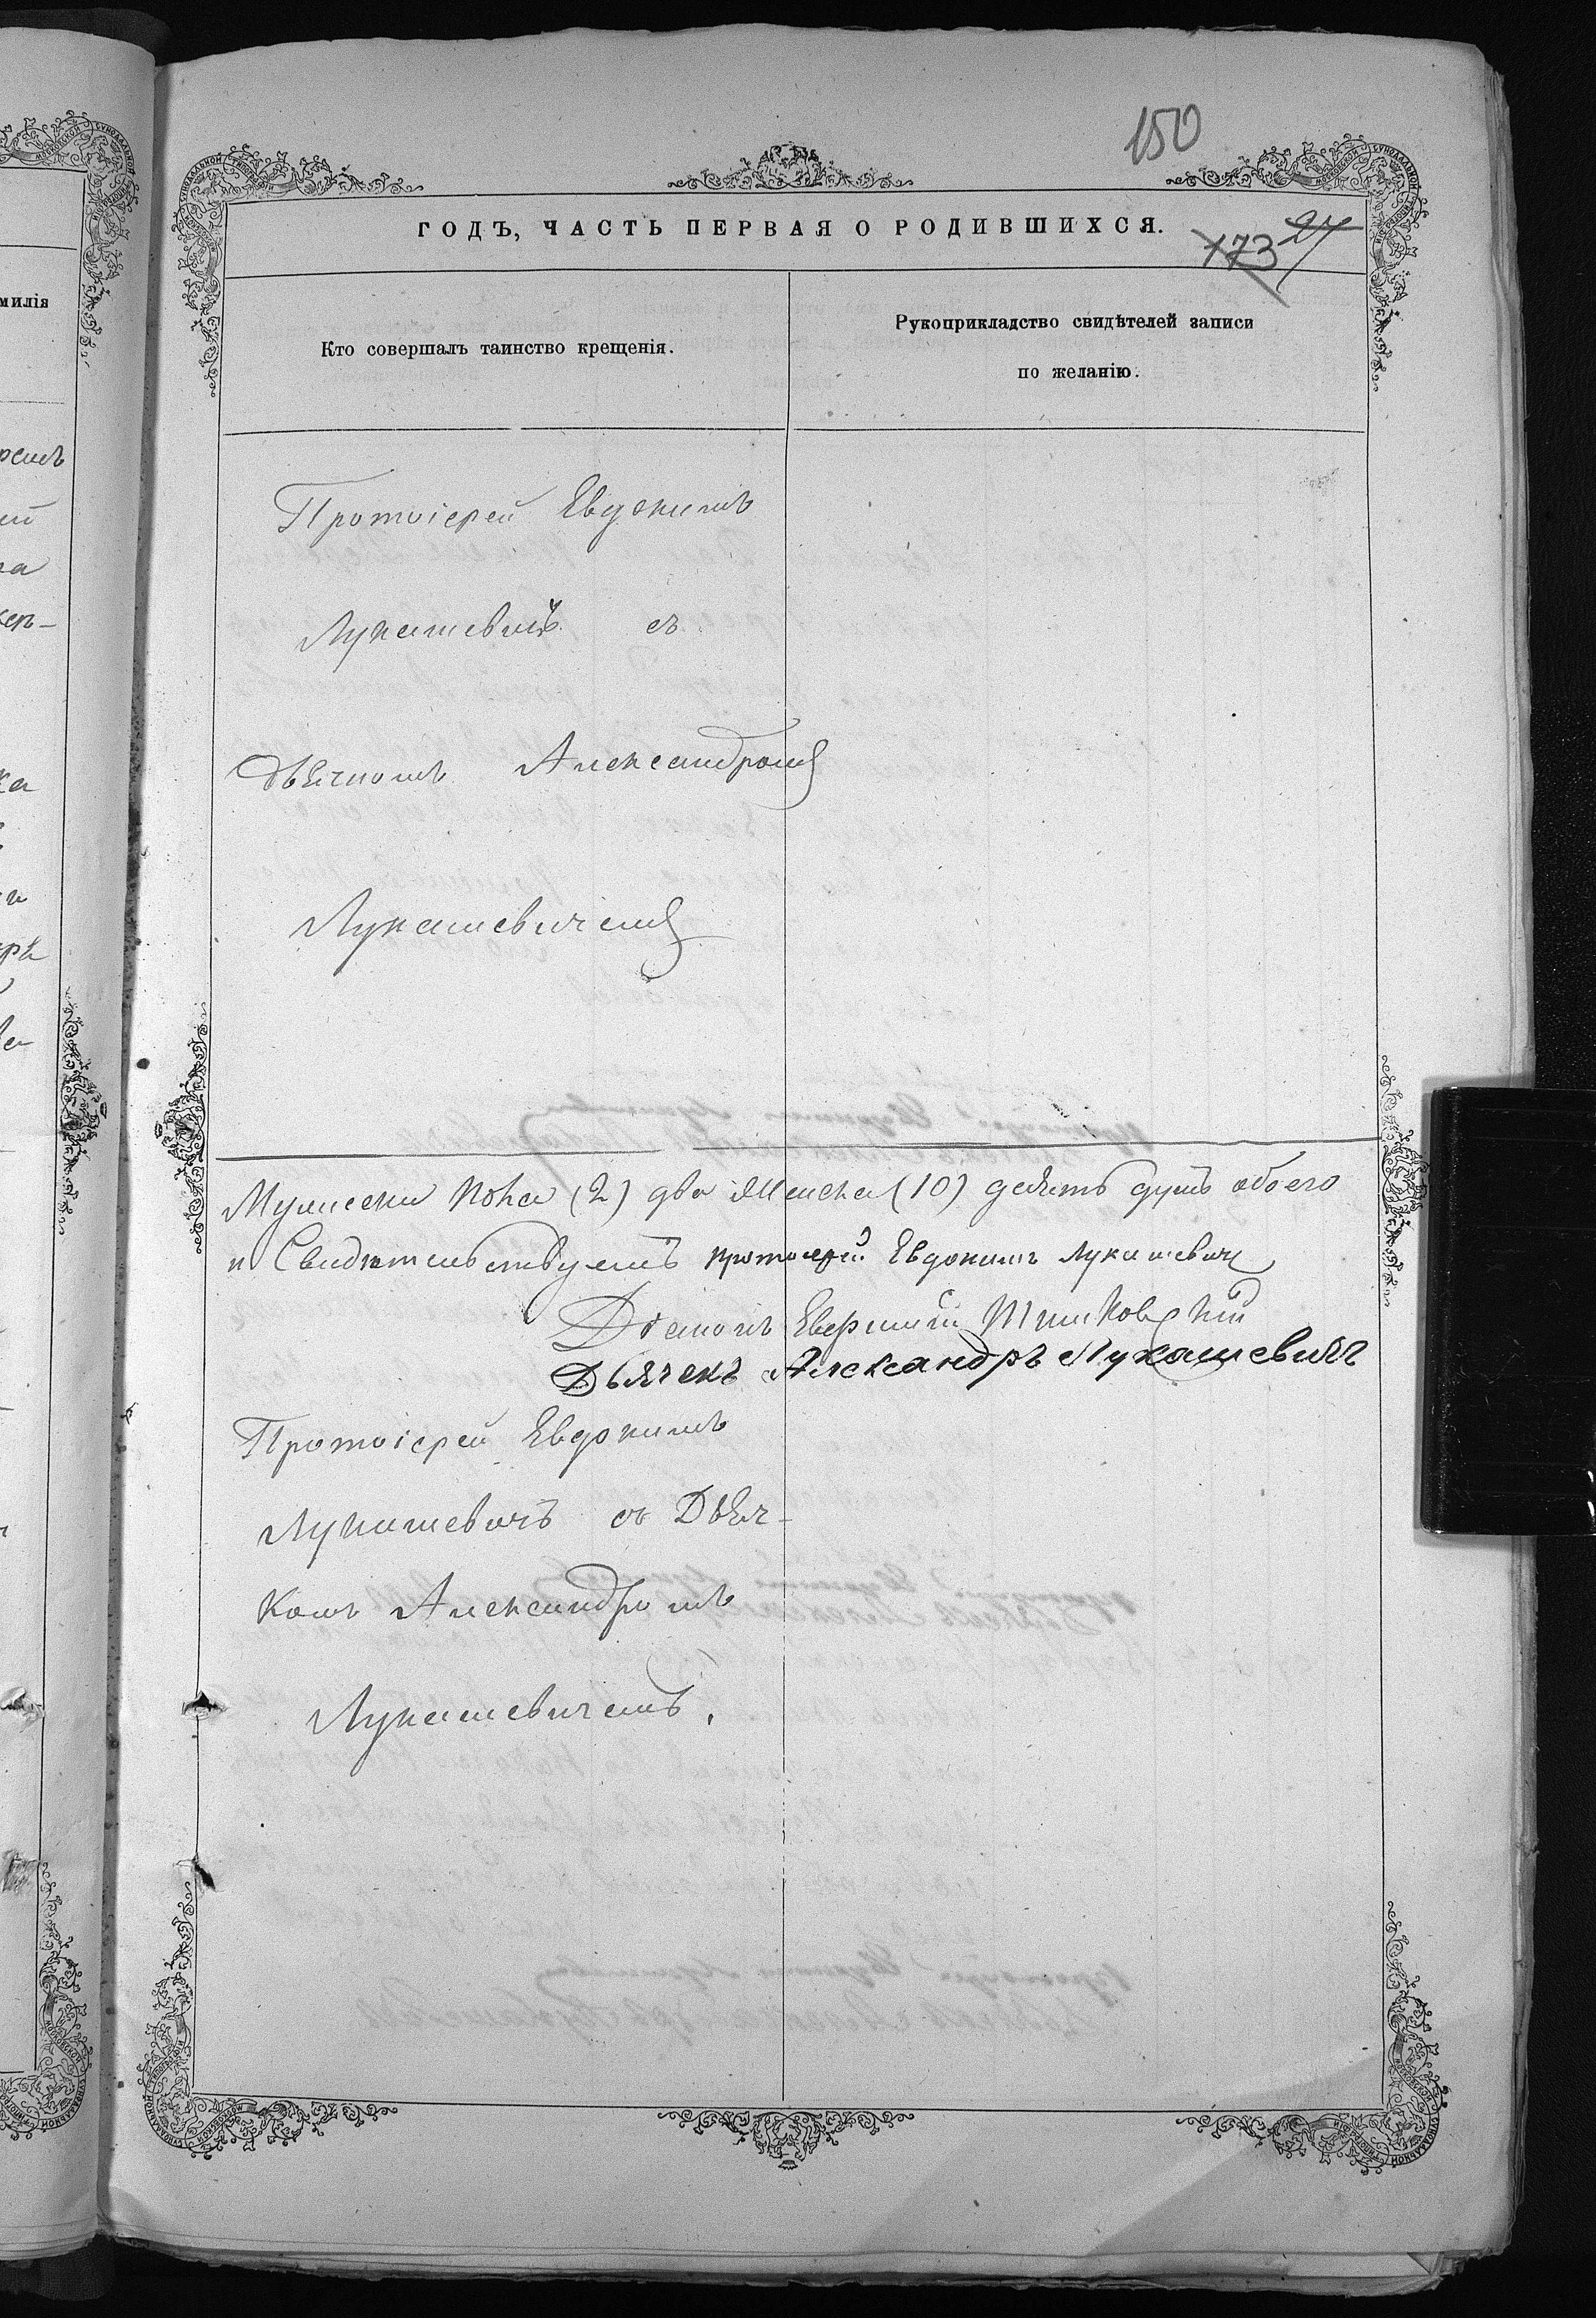 150
ГОДЪ, ЧАСТЬ ПЕРВАЯ О РОДИВШИХСЯ.
173
Кто совершалъ таинство крещенія.
Рукоприкладство свидѣтелей записи
по желанію.
милія
Протоіерей Евдокимъ
Лукашевичъ съ
дьячкомъ Александромъ
Лукашевичемъ
Мужеска пола (2) два Женска (10) десять душъ обоего
и Свидѣтельствуемъ протоіерей Евдокимъ Лукашевич
Діаконъ
Дьячекъ Александръ Лукашевичъ
Протоіерей Евдокимъ
Лукашевичъ съ Дьяч-
комъ Александромъ
Лукашевичемъ.